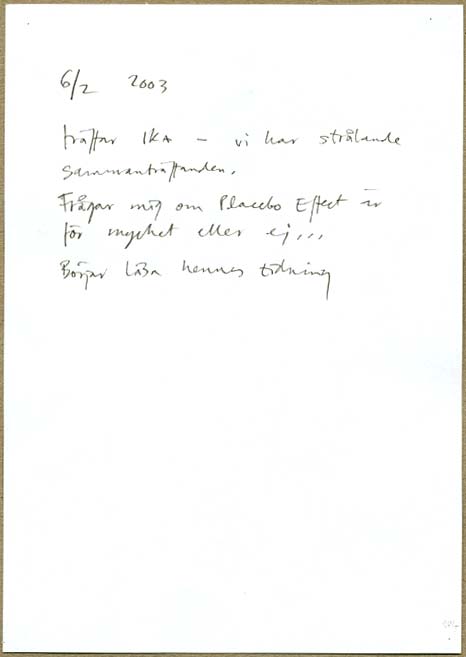 6/2 2003
träffar IKA – vi har strålande
sammanträffanden.
Frågar mig om Placebo Effect är
för mycket eller ej...
Börjar läsa hennes tidning